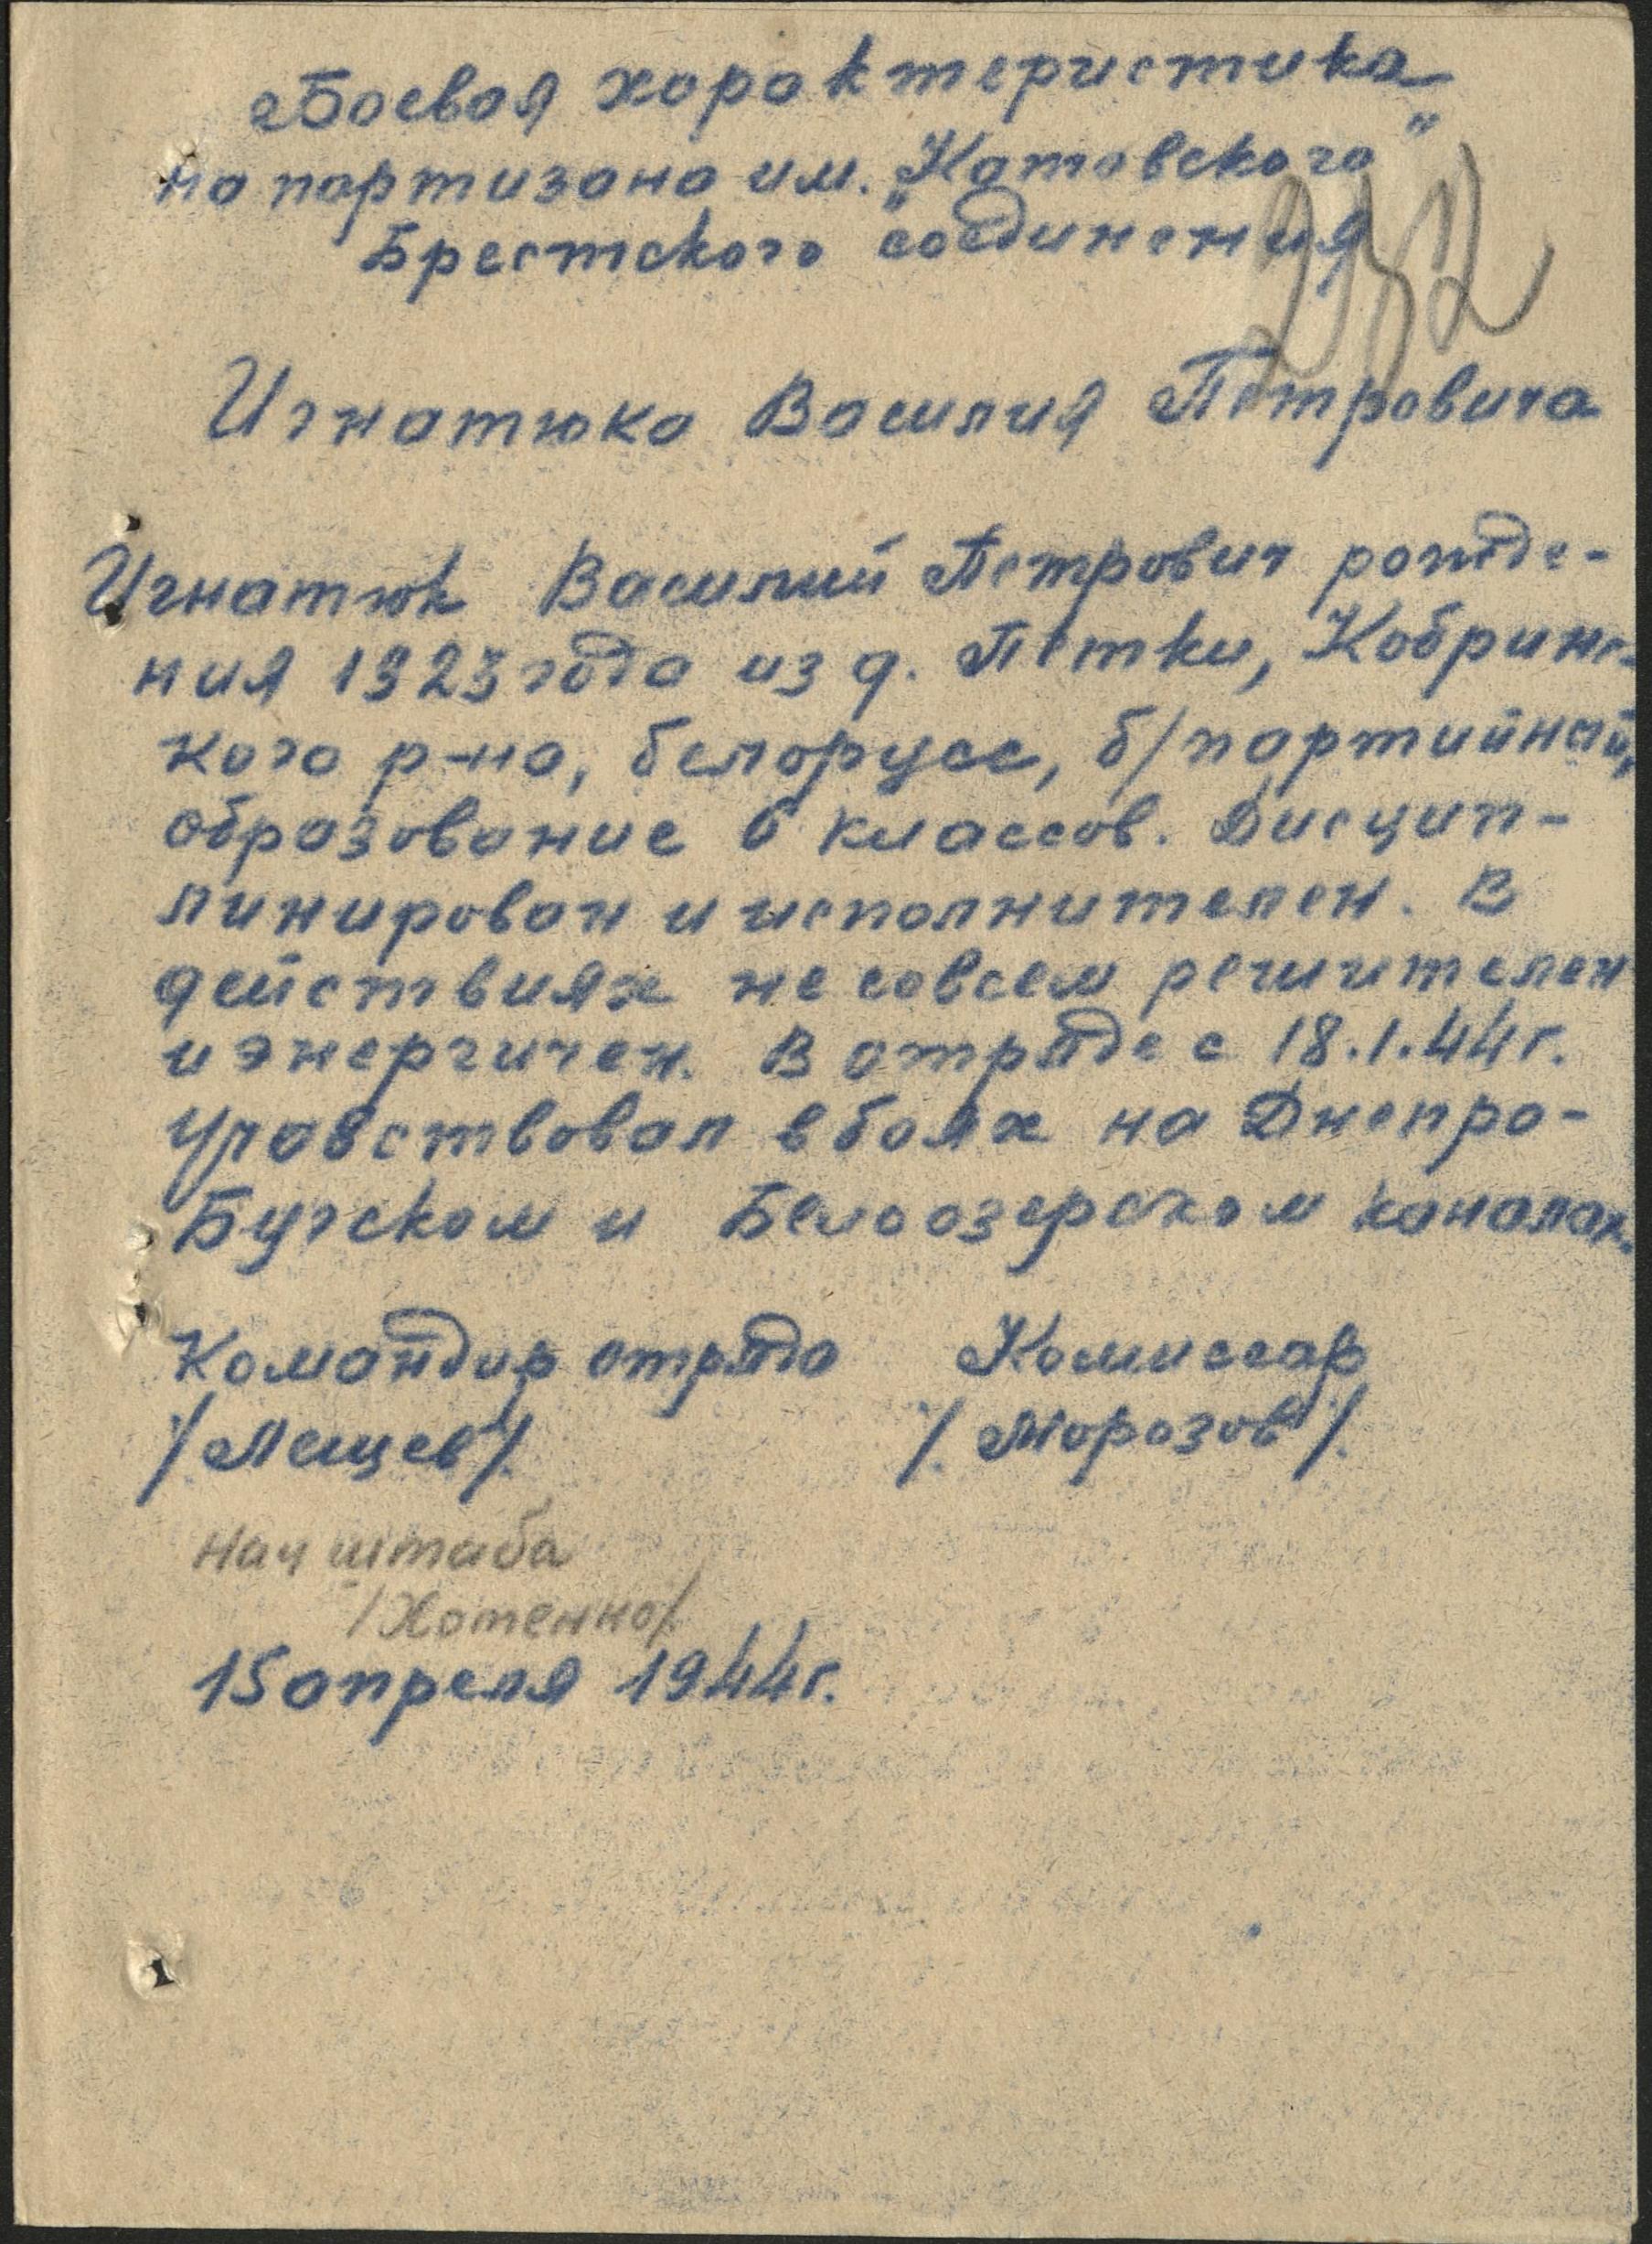 Боевая характеристика
на партизана им. „Котовского"
Брестского соединения
232
Игнатюка Василия Петровича
Игнатюк Василий Петрович рожде-
ния 1923 года из д. Петки, Кобринс-
кого р-на, белорусс, б/партийный,
образование 6 классов. Дисцип-
линирован и исполнителен. В
действиях не совсем решителен
и энергичен. В отряде с 18.1.44г.
Учавствовал в боях на Днепро-
Бугском и Белоозерском каналах.
Командир отряда Комиссар
/Лещев/. /.Морозов/.
Нач штаба
/Хотенно/.
15 апреля 1944г.